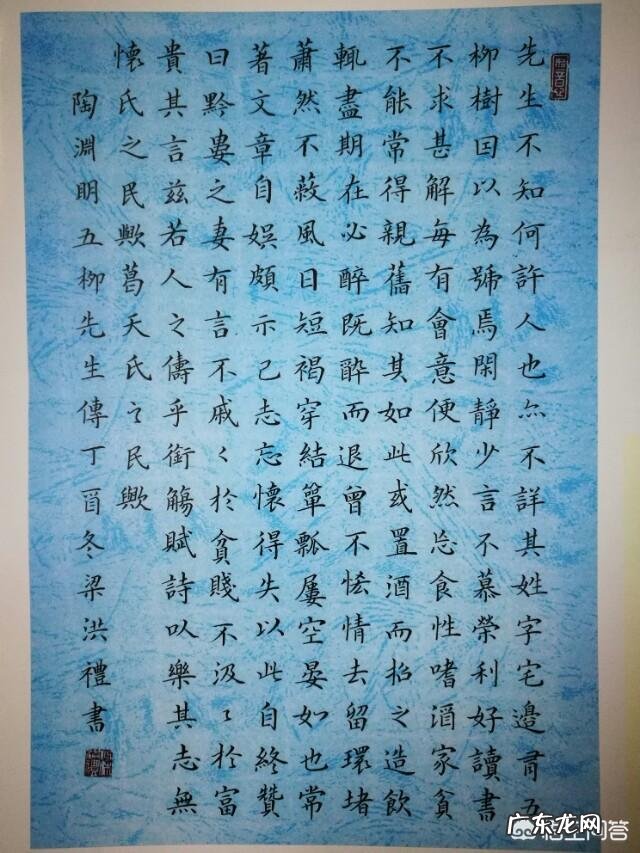 先生不知何許人也亦不詳其姓字宅邊有五
柳樹因以為號焉閑靜少言不慕榮利好讀書
不求甚解每有會意便欣然忘食性嗜酒家貧
不能常得親舊知其如此或置酒而招之造飲
輒盡期在必醉既醉而退曾不恡情去留環堵
蕭然不蔽風日短褐穿結簞瓢屢空晏如也常
著文章自娛頗示己志忘懷得失以此自終贊
曰黔婁之妻有言不戚〻於貧賤不汲〻於富
貴其言茲若人之儔乎銜觴賦詩以樂其志無
懷氏之民歟葛天氏之民歟
陶淵明五柳先生傳丁酉冬梁洪禮書
广东龙网